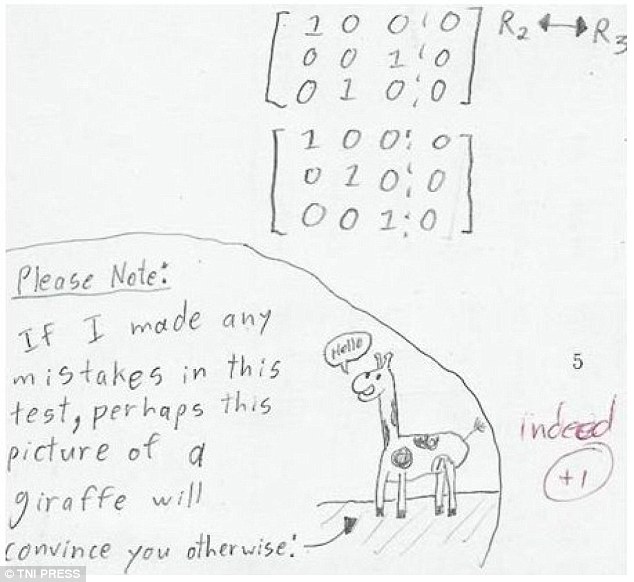 1 0 0 ¦ 0 R2 ↔ R3
0 0 1 ¦ 0
0 1 0 ¦ 0
1 0 0 ¦ 0
0 1 0 ¦ 0
0 0 1 ¦ 0
Please Note:
If I made any
mistakes in this
test, perhaps this
picture of a
giraffe will
convince you otherwise:
Hello
5
indeed
+1
© TNI PRESS